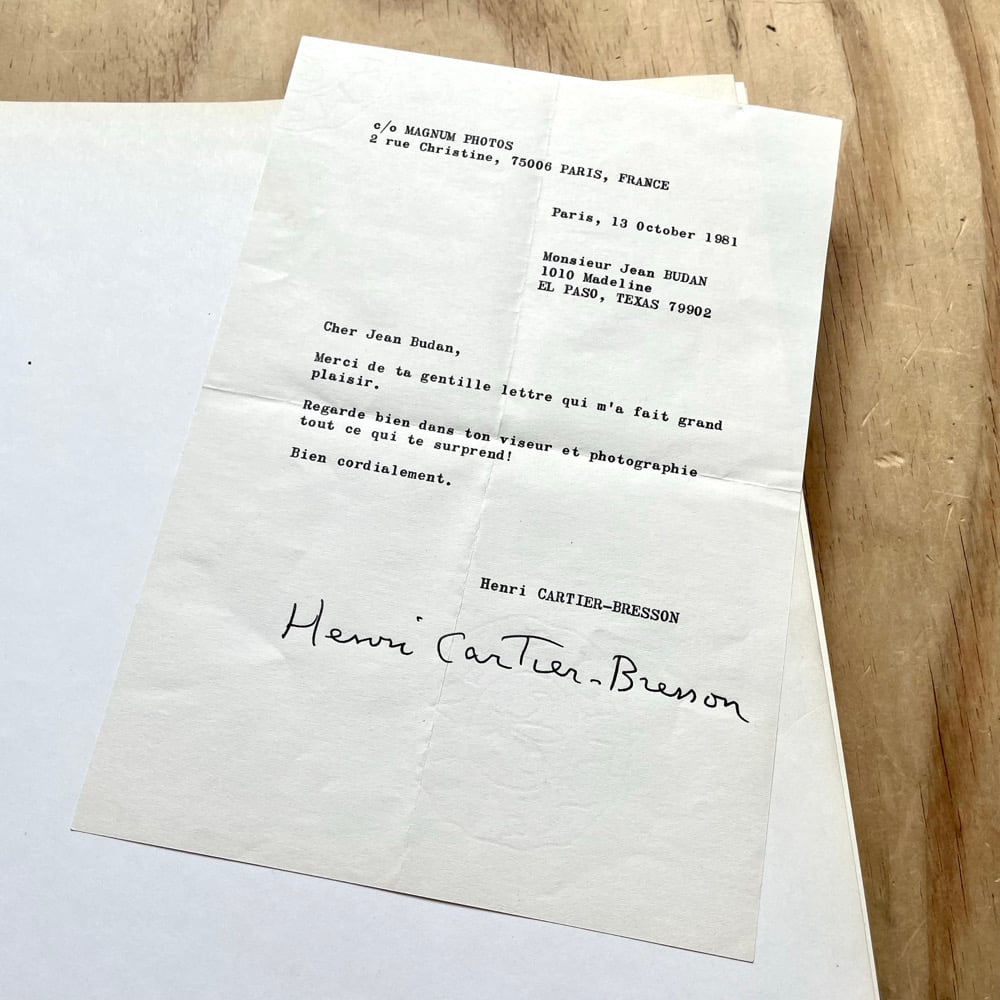 c/o MAGNUM PHOTOS
2 rue Christine, 75006 PARIS, FRANCE
Paris, 13 October 1981
Monsieur Jean BUDAN
1010 Madeline
EL PASO, TEXAS 79902
Cher Jean Budan,
Merci de ta gentille lettre qui m'a fait grand
plaisir.
Regarde bien dans ton viseur et photographie
tout ce qui te surprend!
Bien cordialement.
Henri CARTIER-BRESSON
Henri Cartier-Bresson